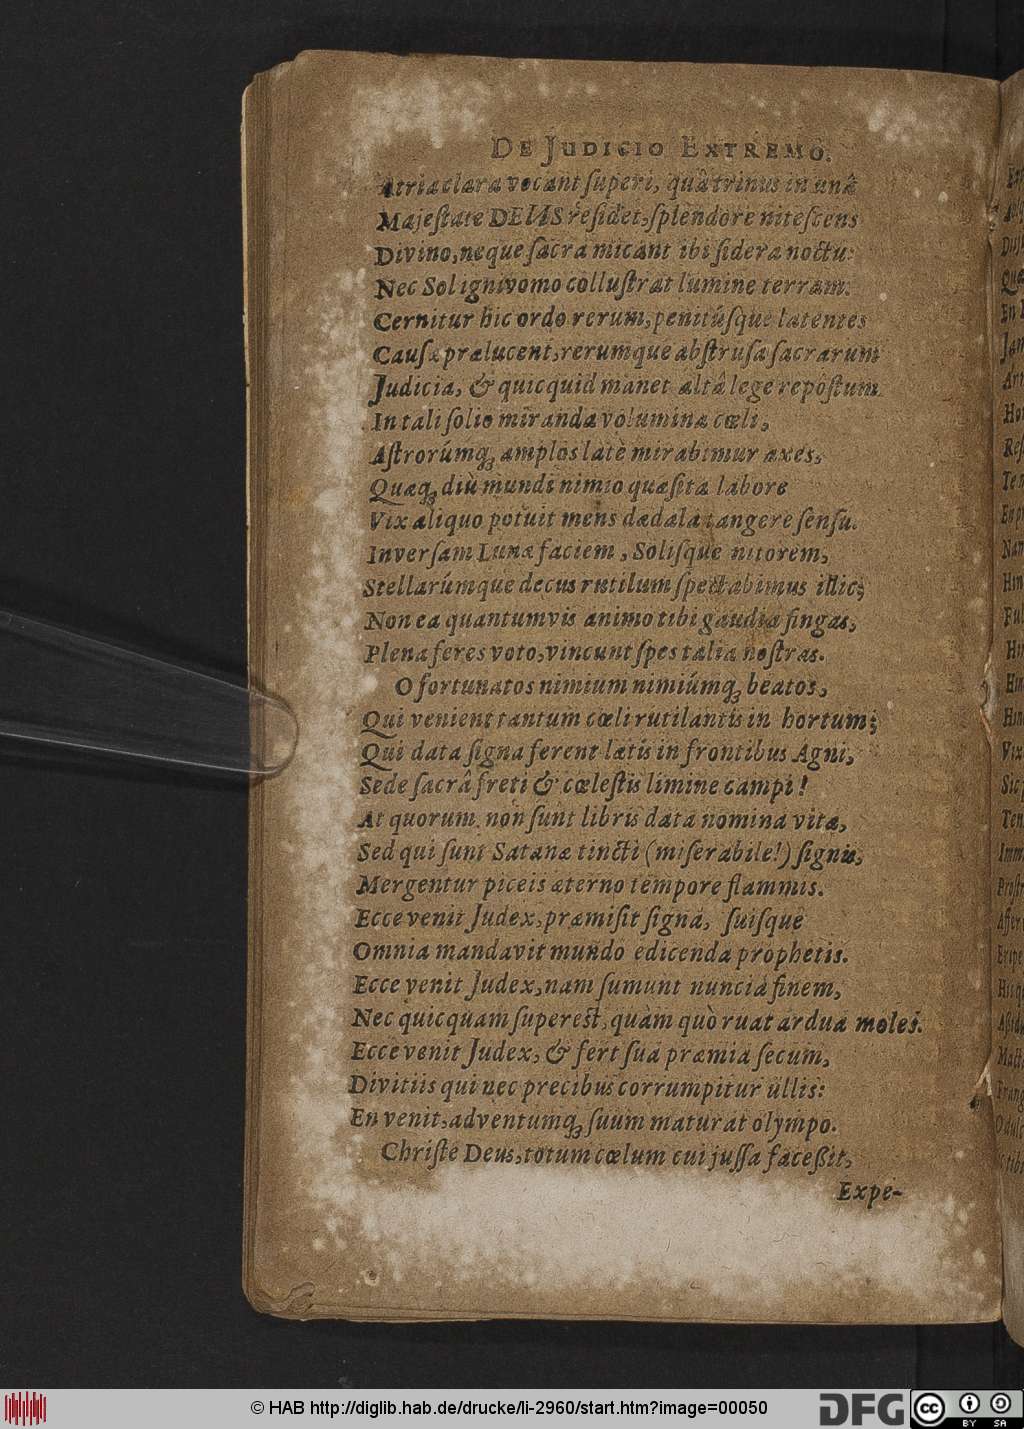 DE JUDICIO EXTREMO.
Atria clara vocant superi, quâ trinus in unâ
Majeſtate DEUS reſidet, ſplendore niteſcens
Divino, neque ſacra micant ibi ſidera noctu:
Nec Sol ignivomo colluſtrat lumine terram.
Cernitur hîc ordo rerum, penitúſque latentes
Cauſæ prælucent, rerumque abſtruſa ſacrarum
Judicia, & quicquid manet altâ lege repôſtum.
In tali ſolio miranda volumina cœli,
Aſtrorúmq́ꝫ amplos latè mirabimur axes,
Quæq́ꝫ diù mundi nimio quæſita labore
Vix aliquo potuit mens dædala tangere ſenſu.
Inverſam Lunæ faciem, Soliſque nitorem,
Stellarúmque decus rutilum ſpectabimus illic;
Non ea quantumvis animo tibi gaudia fingas,
Plena feres voto, vincunt ſpes talia noſtras.
O fortunatos nimium nimiúmq́ꝫ beatos,
Qui venient tantum cœli rutilantis in hortum;
Qui data ſigna ferent lætis in frontibus Agni,
Sede ſacrâ freti & cœleſtis limine campi!
At quorum non ſunt libris data nomina vitæ,
Sed qui ſunt Satanæ tincti (miſerabile!) ſignis,
Mergentur piceis æterno tempore flammis.
Ecce venit Judex, præmiſit ſigna, ſuiſque
Omnia mandavit mundo edicenda prophetis.
Ecce venit Judex, nam ſumunt nuncia finem,
Nec quicquam ſupereſt, quàm quò ruat ardua moles.
Ecce venit Judex, & fert ſua præmia ſecum,
Divitiis qui nec precibus corrumpitur ullis:
En venit, adventumq́ꝫ ſuum maturat olympo.
Chriſte Deus, totum cœlum cui juſſa faceßit,
Expe-
© HAB http://diglib.hab.de/drucke/li-2960/start.htm?image=00050
DFG
cc
BY SA